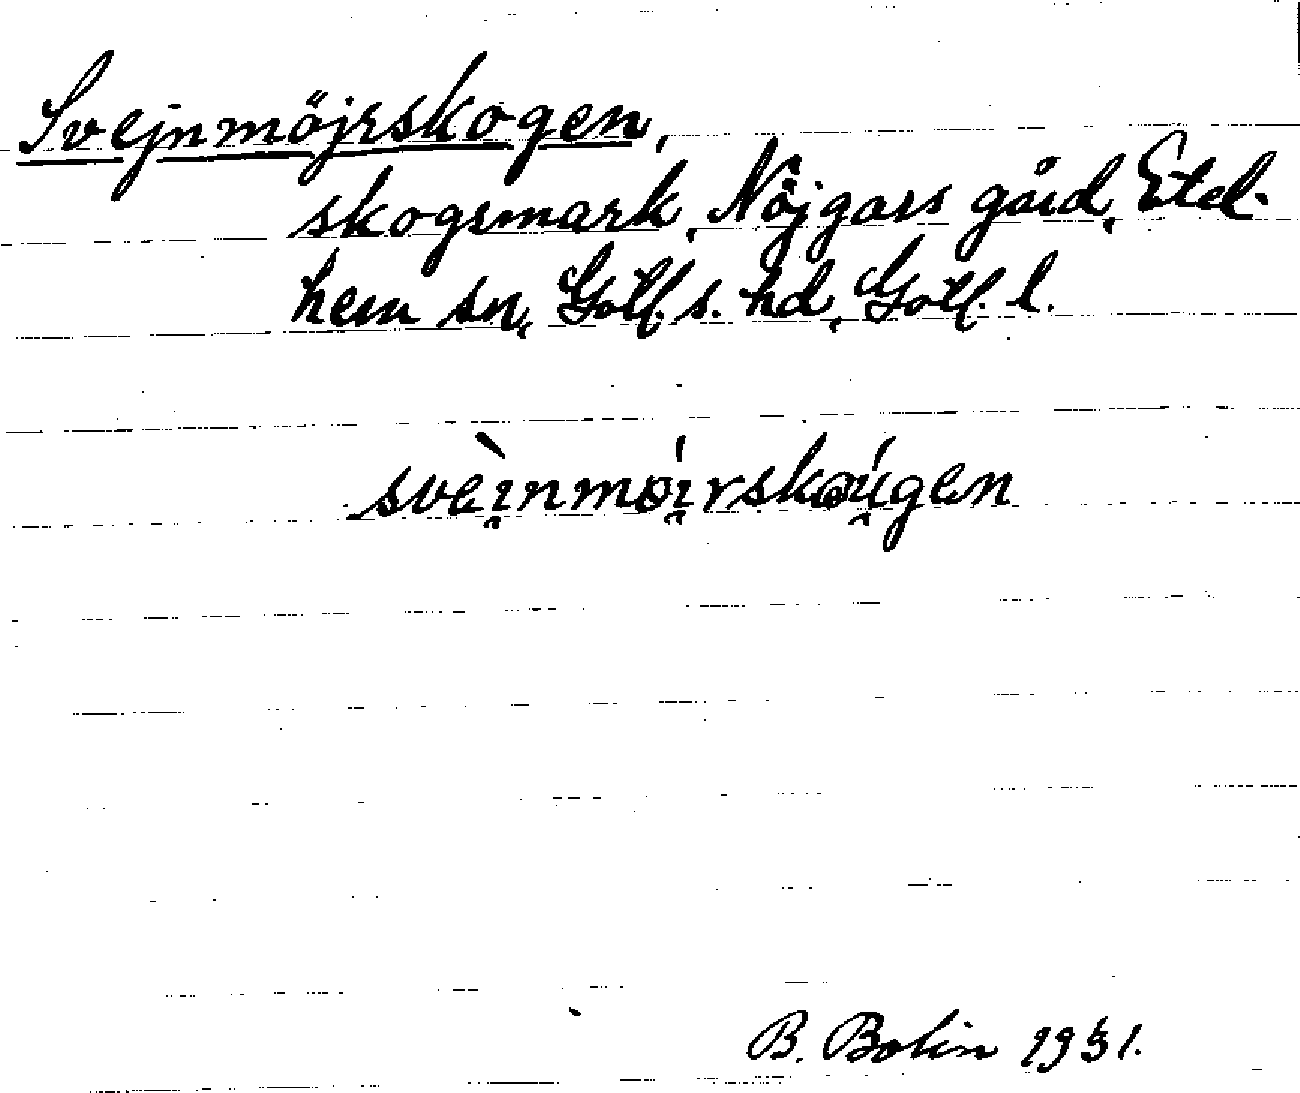 Svejnmöjrskogen,
skogsmark, Nöjgars gård, Etel-
hem sn, Gotl. s. hd, Gotl. l.
svèi̯nmøí̯rskəú̯gen
B. Bolin 1931.